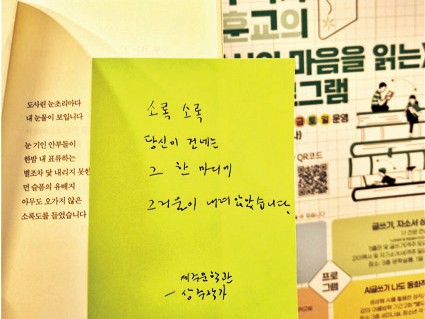 도사린 눈초리마다
내 눈물이 보입니다
눈 기인 안부들이
한밤 내 표류하는
별조차 닻 내리지 못한
먼 슬픔의 유배지
아무도 오가지 않은
소록도를 들었습니다
소록 소록
당신이 건네는
그 한 마디에
그거울이 내려앉았습니다.
제주문학관
상주작가
훈교의
마음을 읽는
그램
금 토 일 운영
QR코드
글쓰기, 자소서
프로
그램
AI글쓰기 나도 동화작